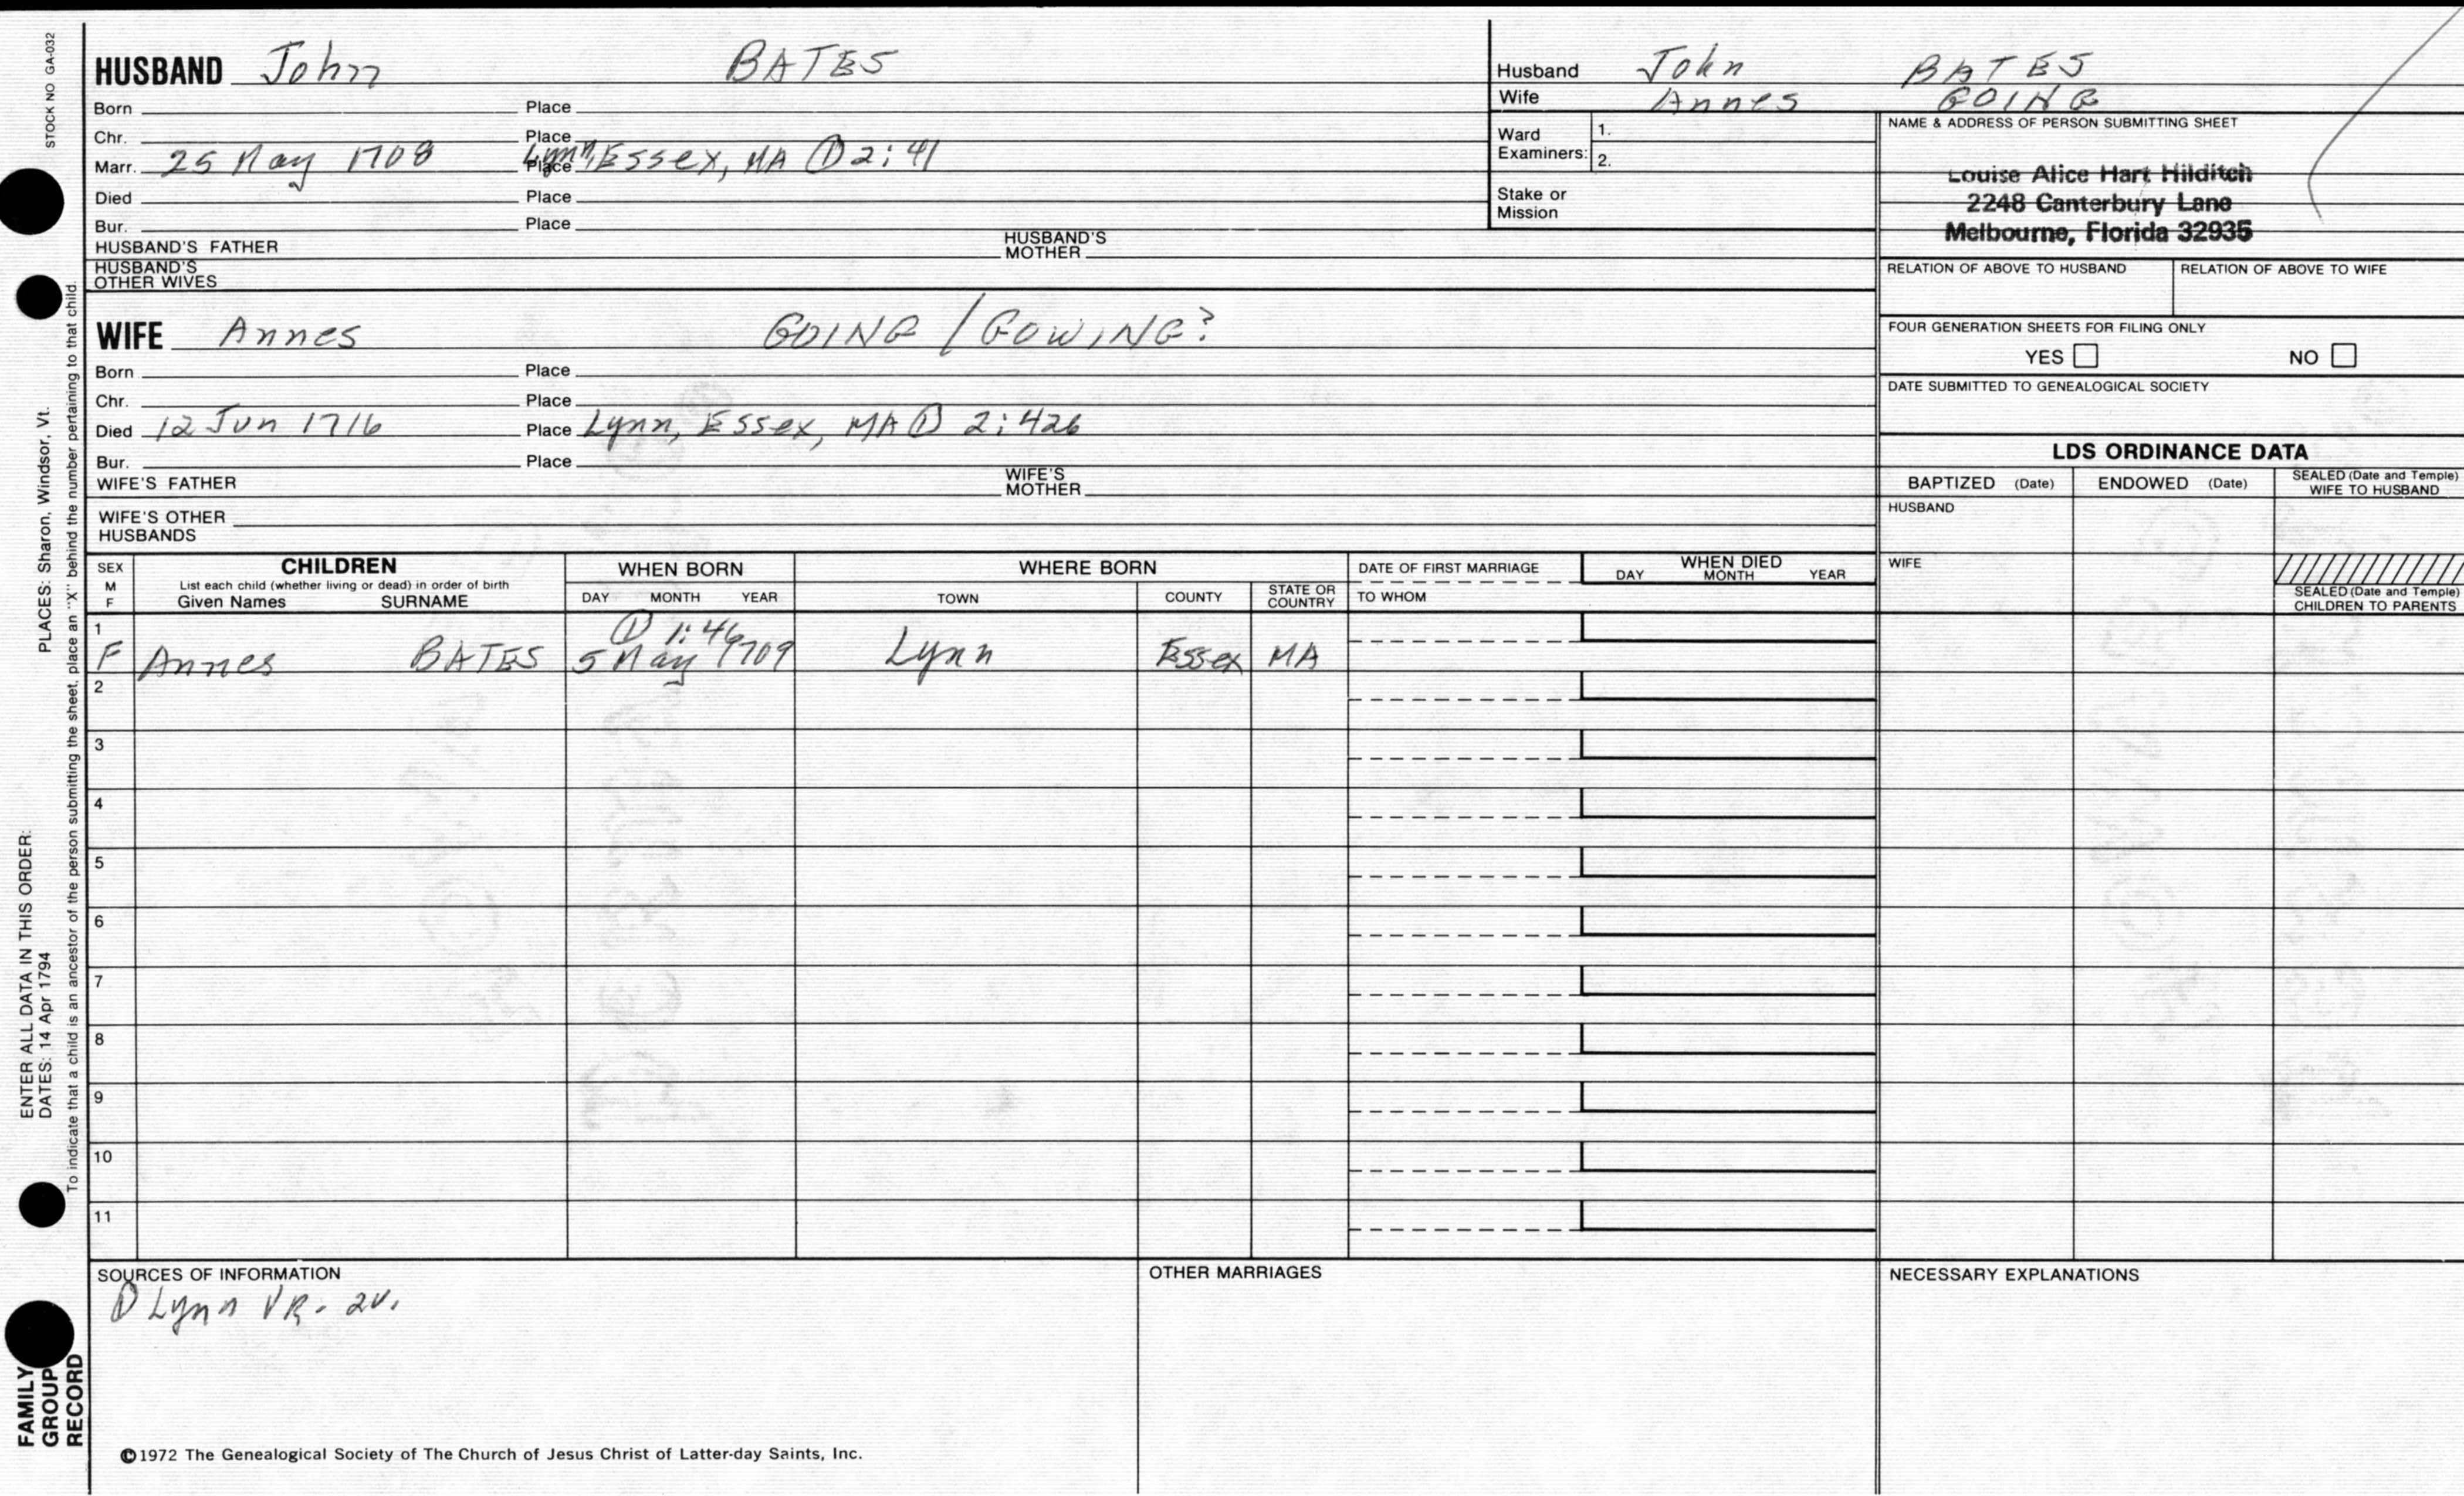 STOCK NO GA-032
PLACES: Sharon, Windsor, Vt.
ENTER ALL DATA IN THIS ORDER:
DATES: 14 Apr 1794
To indicate that a child is an ancestor of the person submitting the sheet, place an "X" behind the number pertaining to that child.
FAMILY
GROUP
RECORD
HUSBAND John BATES
Born Place
Chr. Place
Marr. 25 May 1708 Place Lynn, Essex, MA ① 2:41
Died Place
Bur. Place
HUSBAND'S FATHER HUSBAND'S MOTHER
HUSBAND'S OTHER WIVES
WIFE Annes GOING / GOWING?
Born Place
Chr. Place
Died 12 Jun 1716 Place Lynn, Essex, MA ① 2:426
Bur. Place
WIFE'S FATHER WIFE'S MOTHER
WIFE'S OTHER HUSBANDS
Husband John BATES
Wife Annes GOING
Ward Examiners: 1.
2.
Stake or Mission
NAME & ADDRESS OF PERSON SUBMITTING SHEET
Louise Alice Hart Hilditch
2248 Canterbury Lane
Melbourne, Florida 32935
RELATION OF ABOVE TO HUSBAND RELATION OF ABOVE TO WIFE
FOUR GENERATION SHEETS FOR FILING ONLY
YES NO
DATE SUBMITTED TO GENEALOGICAL SOCIETY
LDS ORDINANCE DATA
BAPTIZED (Date) ENDOWED (Date) SEALED (Date and Temple) WIFE TO HUSBAND
HUSBAND
WIFE
SEALED (Date and Temple) CHILDREN TO PARENTS
SEX M F
CHILDREN
List each child (whether living or dead) in order of birth
Given Names SURNAME
WHEN BORN
DAY MONTH YEAR
WHERE BORN
TOWN COUNTY STATE OR COUNTRY
DATE OF FIRST MARRIAGE
TO WHOM
WHEN DIED
DAY MONTH YEAR
1
① 1:46
F Annes BATES 5 May 1709 Lynn Essex MA
2
3
4
5
6
7
8
9
10
11
SOURCES OF INFORMATION
① Lynn VR- 2v.
OTHER MARRIAGES
NECESSARY EXPLANATIONS
©1972 The Genealogical Society of The Church of Jesus Christ of Latter-day Saints, Inc.